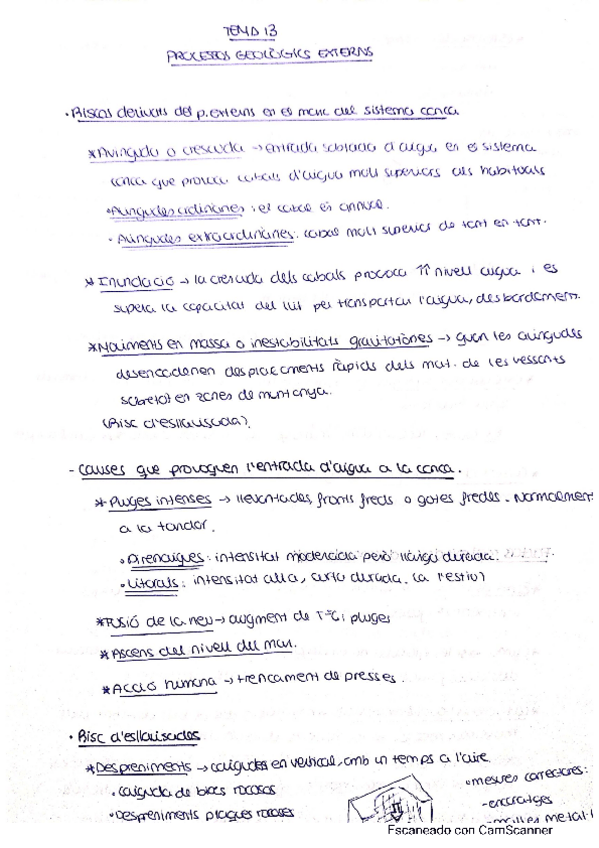 TEMA 13
PROCESSOS GEOLÒGICS EXTERNS
· Riscos derivats del p. externs en el marc del sistema conca
* Avinguda o crescuda → entrada sobtada d'aigua en el sistema
conca que provoca cabals d'aigua molt superiors als habituals
· Avingudes ordinàries: el cabal és annual.
· Avingudes extraordinàries: cabal molt superior de tant en tant.
* Inundació → la crescuda dels cabals provoca ↑↑ nivell aigua i es
supera la capacitat del llit per transportar l'aigua, desbordament.
* Moviments en massa o inestabilitats gravitatòries → quan les avingudes
desencadenen desplaçaments ràpids dels mat. de les vessants
sobretot en zones de muntanya.
(Risc d'esllavissada)
- Causes que provoquen l'entrada d'aigua a la conca.
* Pluges intenses → llevantades, fronts freds o gotes fredes. Normalment
a la tardor.
· Pirenaigues: intensitat moderada però llarga durada.
· Litorals: intensitat alta, curta durada. (a l'estiu)
* Fusió de la neu → augment de TªC i pluges
* Ascens del nivell del mar.
* Acció humana → trencament de presses.
· Risc d'esllavissades
* Despreniments → caigudes en vertical, amb un temps a l'aire.
· caiguda de blocs rocosos
· Despreniments plaques rocoses
· mesures correctores:
- ancoratges
Escaneado con CamScanner